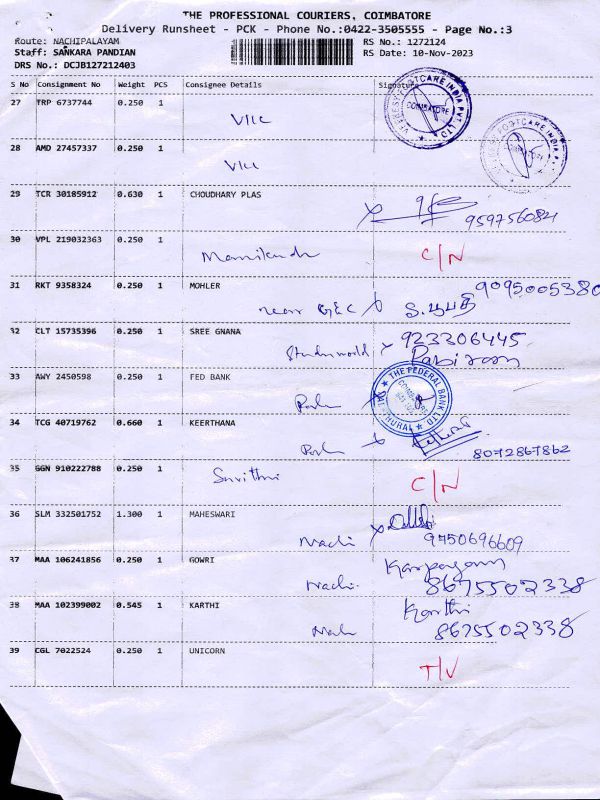 THE PROFESSIONAL COURIERS, COIMBATORE
Delivery Runsheet - PCK - Phone No.:0422-3505555 - Page No.:3
Route: NACHIPALAYAM RS No.: 1272124
Staff: SANKARA PANDIAN RS Date: 10-Nov-2023
DRS No.: DCJB127212403
S No Consignment No Weight PCS Consignee Details Signature
27 TRP 6737744 0.250 1
COIMBATORE
28 AMD 27457337 0.250 1
29 TCR 30185912 0.630 1 CHOUDHARY PLAS
959756084
30 VPL 219032363 0.250 1
C/N
31 RKT 9358324 0.250 1 MOHLER
9095005380
near
32 CLT 15735396 0.250 1 SREE GNANA
923306445
33 AWY 2450598 0.250 1 FED BANK
THE FEDERAL BANK LTD
34 TCG 40719762 0.660 1 KEERTHANA
8072867862
35 GGN 910222788 0.250 1
C/N
36 SLM 332501752 1.300 1 MAHESWARI
Nachi 9750696609
37 MAA 106241856 0.250 1 GOWRI
Nachi. 8675502338
38 MAA 102399002 0.545 1 KARTHI
Karthi
8675502338
39 CGL 7022524 0.250 1 UNICORN
T/V